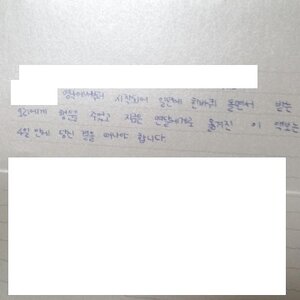 영국에서부터 시작되어 일년에 한바퀴 돌면서 받는
우리에게 행운을 주었고 지금은 당신에게로 옮겨진 이 행운은
4일 안에 당신 곁을 떠나야 합니다